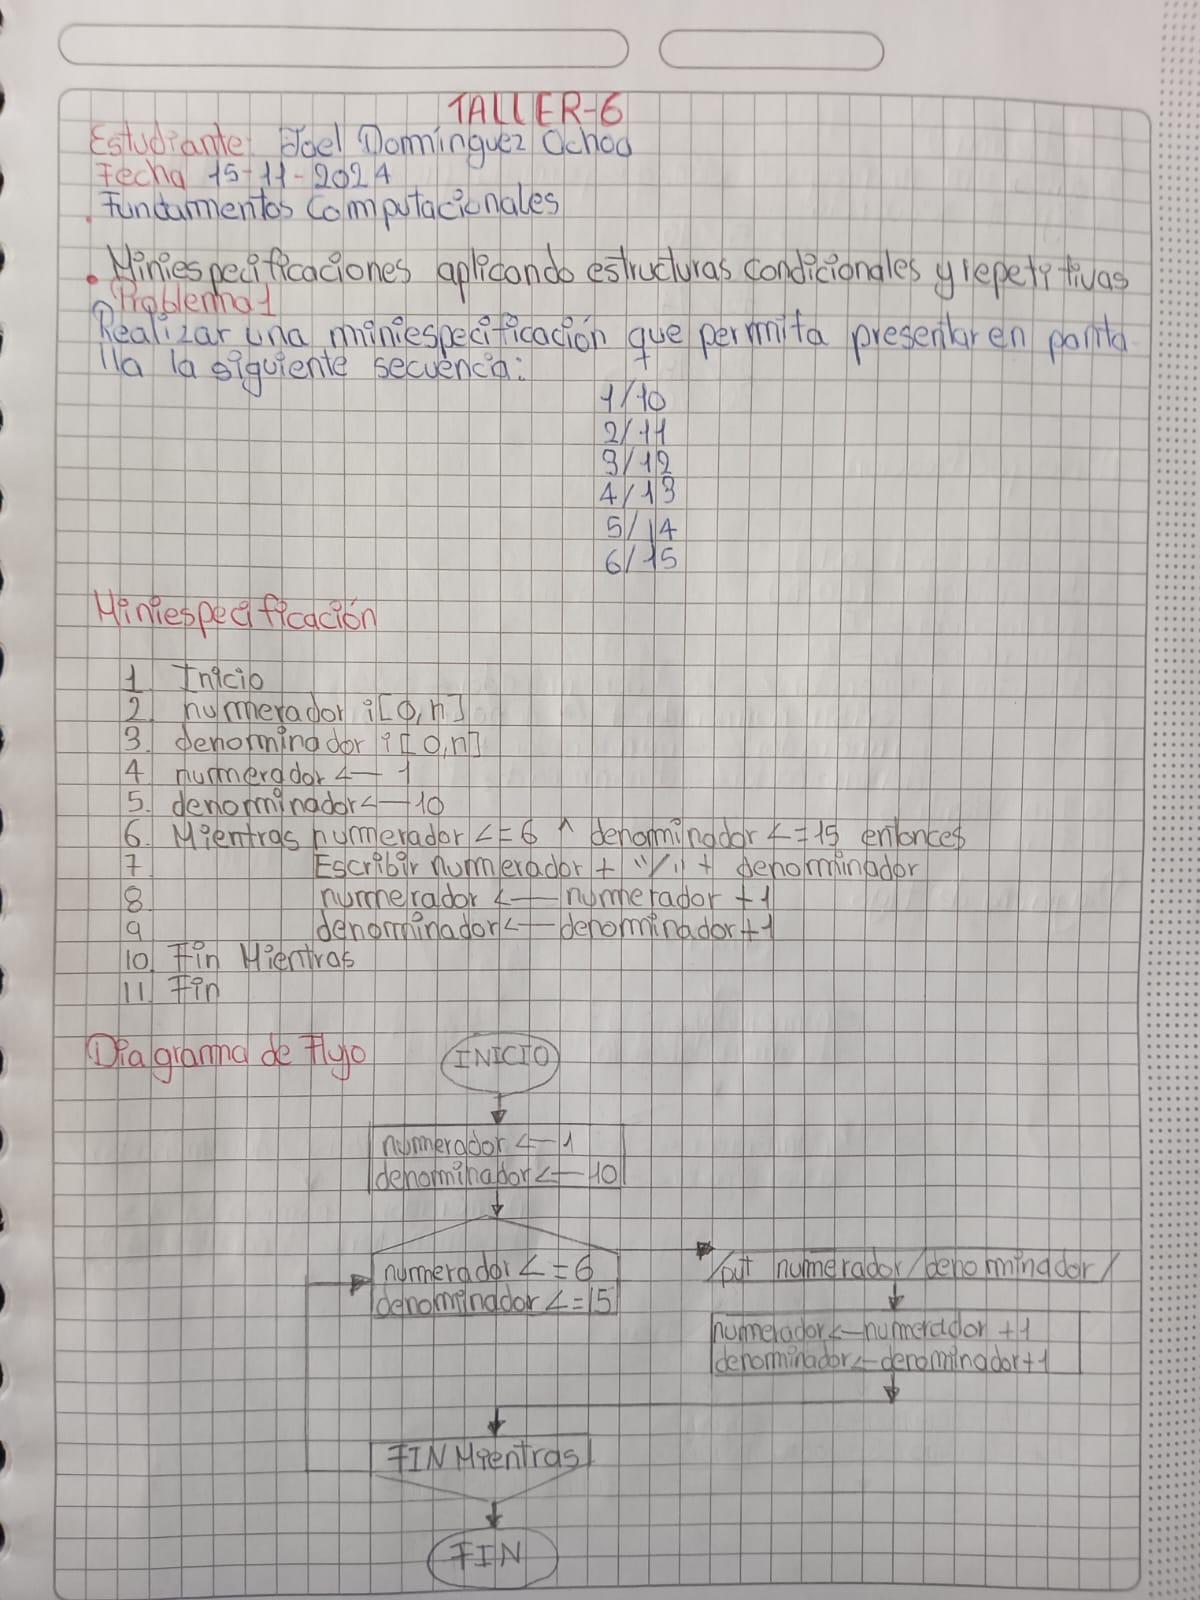 TALLER-6
Estudiante: Joel Domínguez Ochoa
Fecha 15-11-2024
. Fundamentos Computacionales
• Miniespecificaciones aplicando estructuras condicionales y repetitivas
Problema 1
Realizar una miniespecificación que permita presentar en panta-
lla la siguiente secuencia:
1/10
2/11
3/12
4/13
5/14
6/15
Miniespecificación
1 Inicio
2. numerador i[0,n]
3. denominador i[0,n]
4 numerador <— 1
5. denominador <— 10
6. Mientras numerador <=6 ^ denominador <=15 entonces
7 Escribir numerador + "/" + denominador
8 numerador <— numerador +1
9 denominador <— denominador+1
10. Fin Mientras
11. Fin
Diagrama de Flujo
INICIO
numerador <— 1
denominador <— 10
numerador <=6
denominador <=15
/put numerador/denominador/
numerador <— numerador +1
denominador <— denominador+1
FIN Mientras
FIN